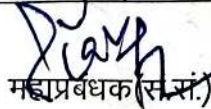 महाप्रबंधक (स.सं.)